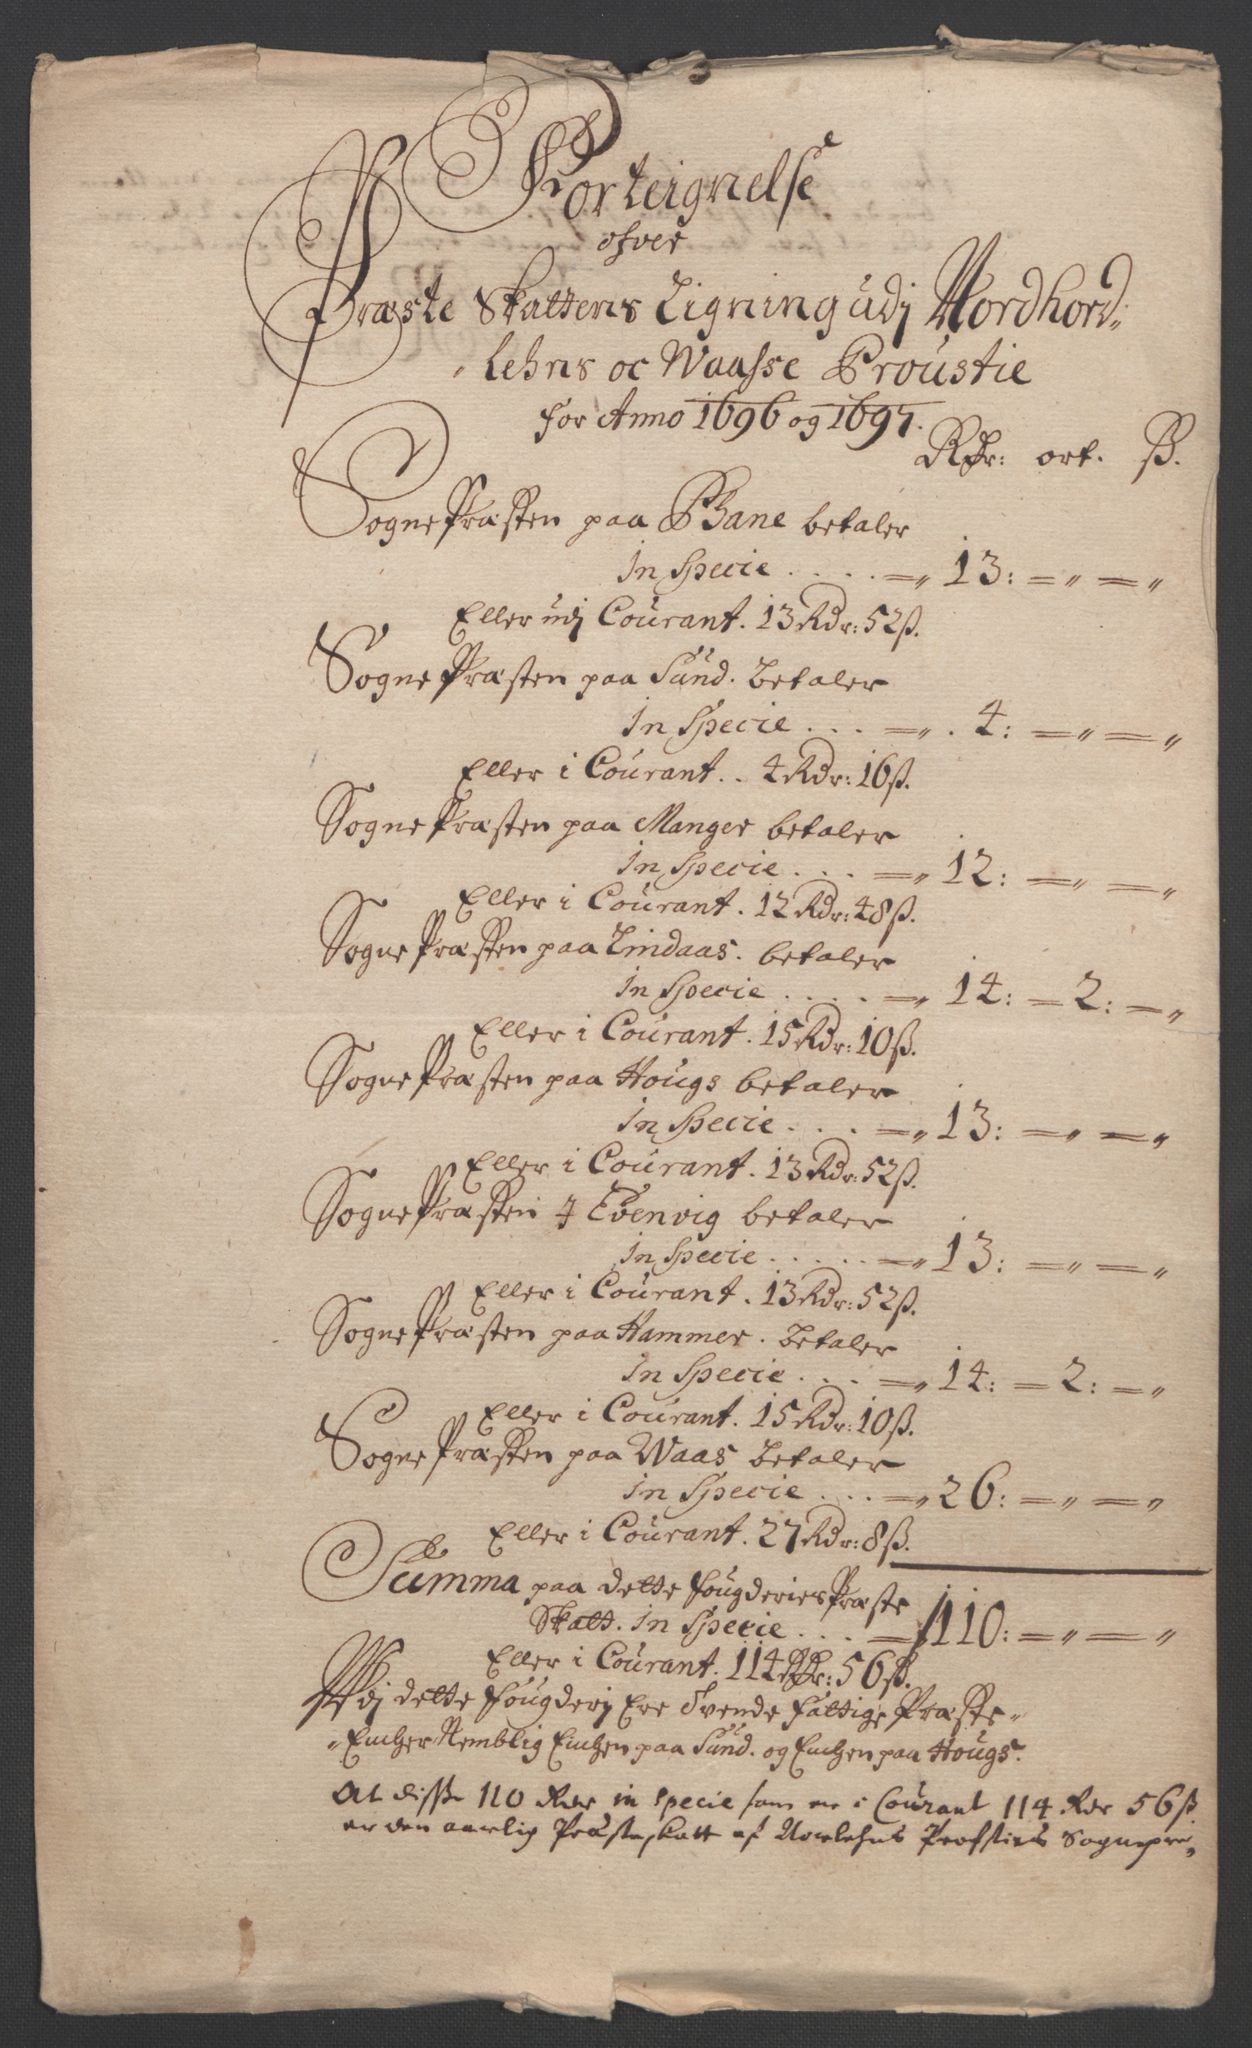 Forteignelse
ofver
Præste Skattens Ligning udj Nordhord-
lehns oc Waasse Proustie
for Anno 1696 og 1697.
Rdr: ort. ß.
Sogne Præsten paa Hane betaler
in Specie . . . . =,, 13: =,, =,,
Eller udj Courant. 13 Rdr: 52 ß.
Sogne Præsten paa Sund. betaler
in Specie . . . =,, . 4: =,, =,,
Eller i Courant. . 4 Rdr: 16 ß.
Sogne Præsten paa Manger betaler
in Specie . . . =,, 12: =,, =,,
Eller i Courant. 12 Rdr: 48 ß.
Sogne Præsten paa Lindaas. betaler
in Specie . . . . =,, 14: = 2: =,,
Eller i Courant. 15 Rdr: 10 ß.
Sogne Præsten paa Hougs betaler
in Specie . . . =,, 13: =,, =,,
Eller i Courant. 13 Rdr: 52 ß.
Sogne Præsten i Evenvig betaler
in Specie . . . . . =,, 13: =,, =,,
Eller i Courant. 13 Rdr: 52 ß.
Sogne Præsten paa Hammer. betaler
in Specie . . . =,, 14: = 2: =,,
Eller i Courant. 15 Rdr: 10 ß.
Sogne Præsten paa Waas betaler
in Specie . . . =,, 26: =,, =,,
Eller i Courant. 27 Rdr: 8 ß.
Summa paa dette fougderies Præste
Skatt. in Specie . . . = 110: =,, =,,
Eller i Courant. 114 Rdr: 56 ß.
Udj dette fougderj Ere Tvende fattige Præste-
Encher Nemblig Enchen paa Sund. og Enchen paa Hougs.
At disse 110 Rdr in specie som er i Courant 114 Rdr 56 ß
er den aarlig Præsteskatt af Norlehns Profsties Sognepre,,